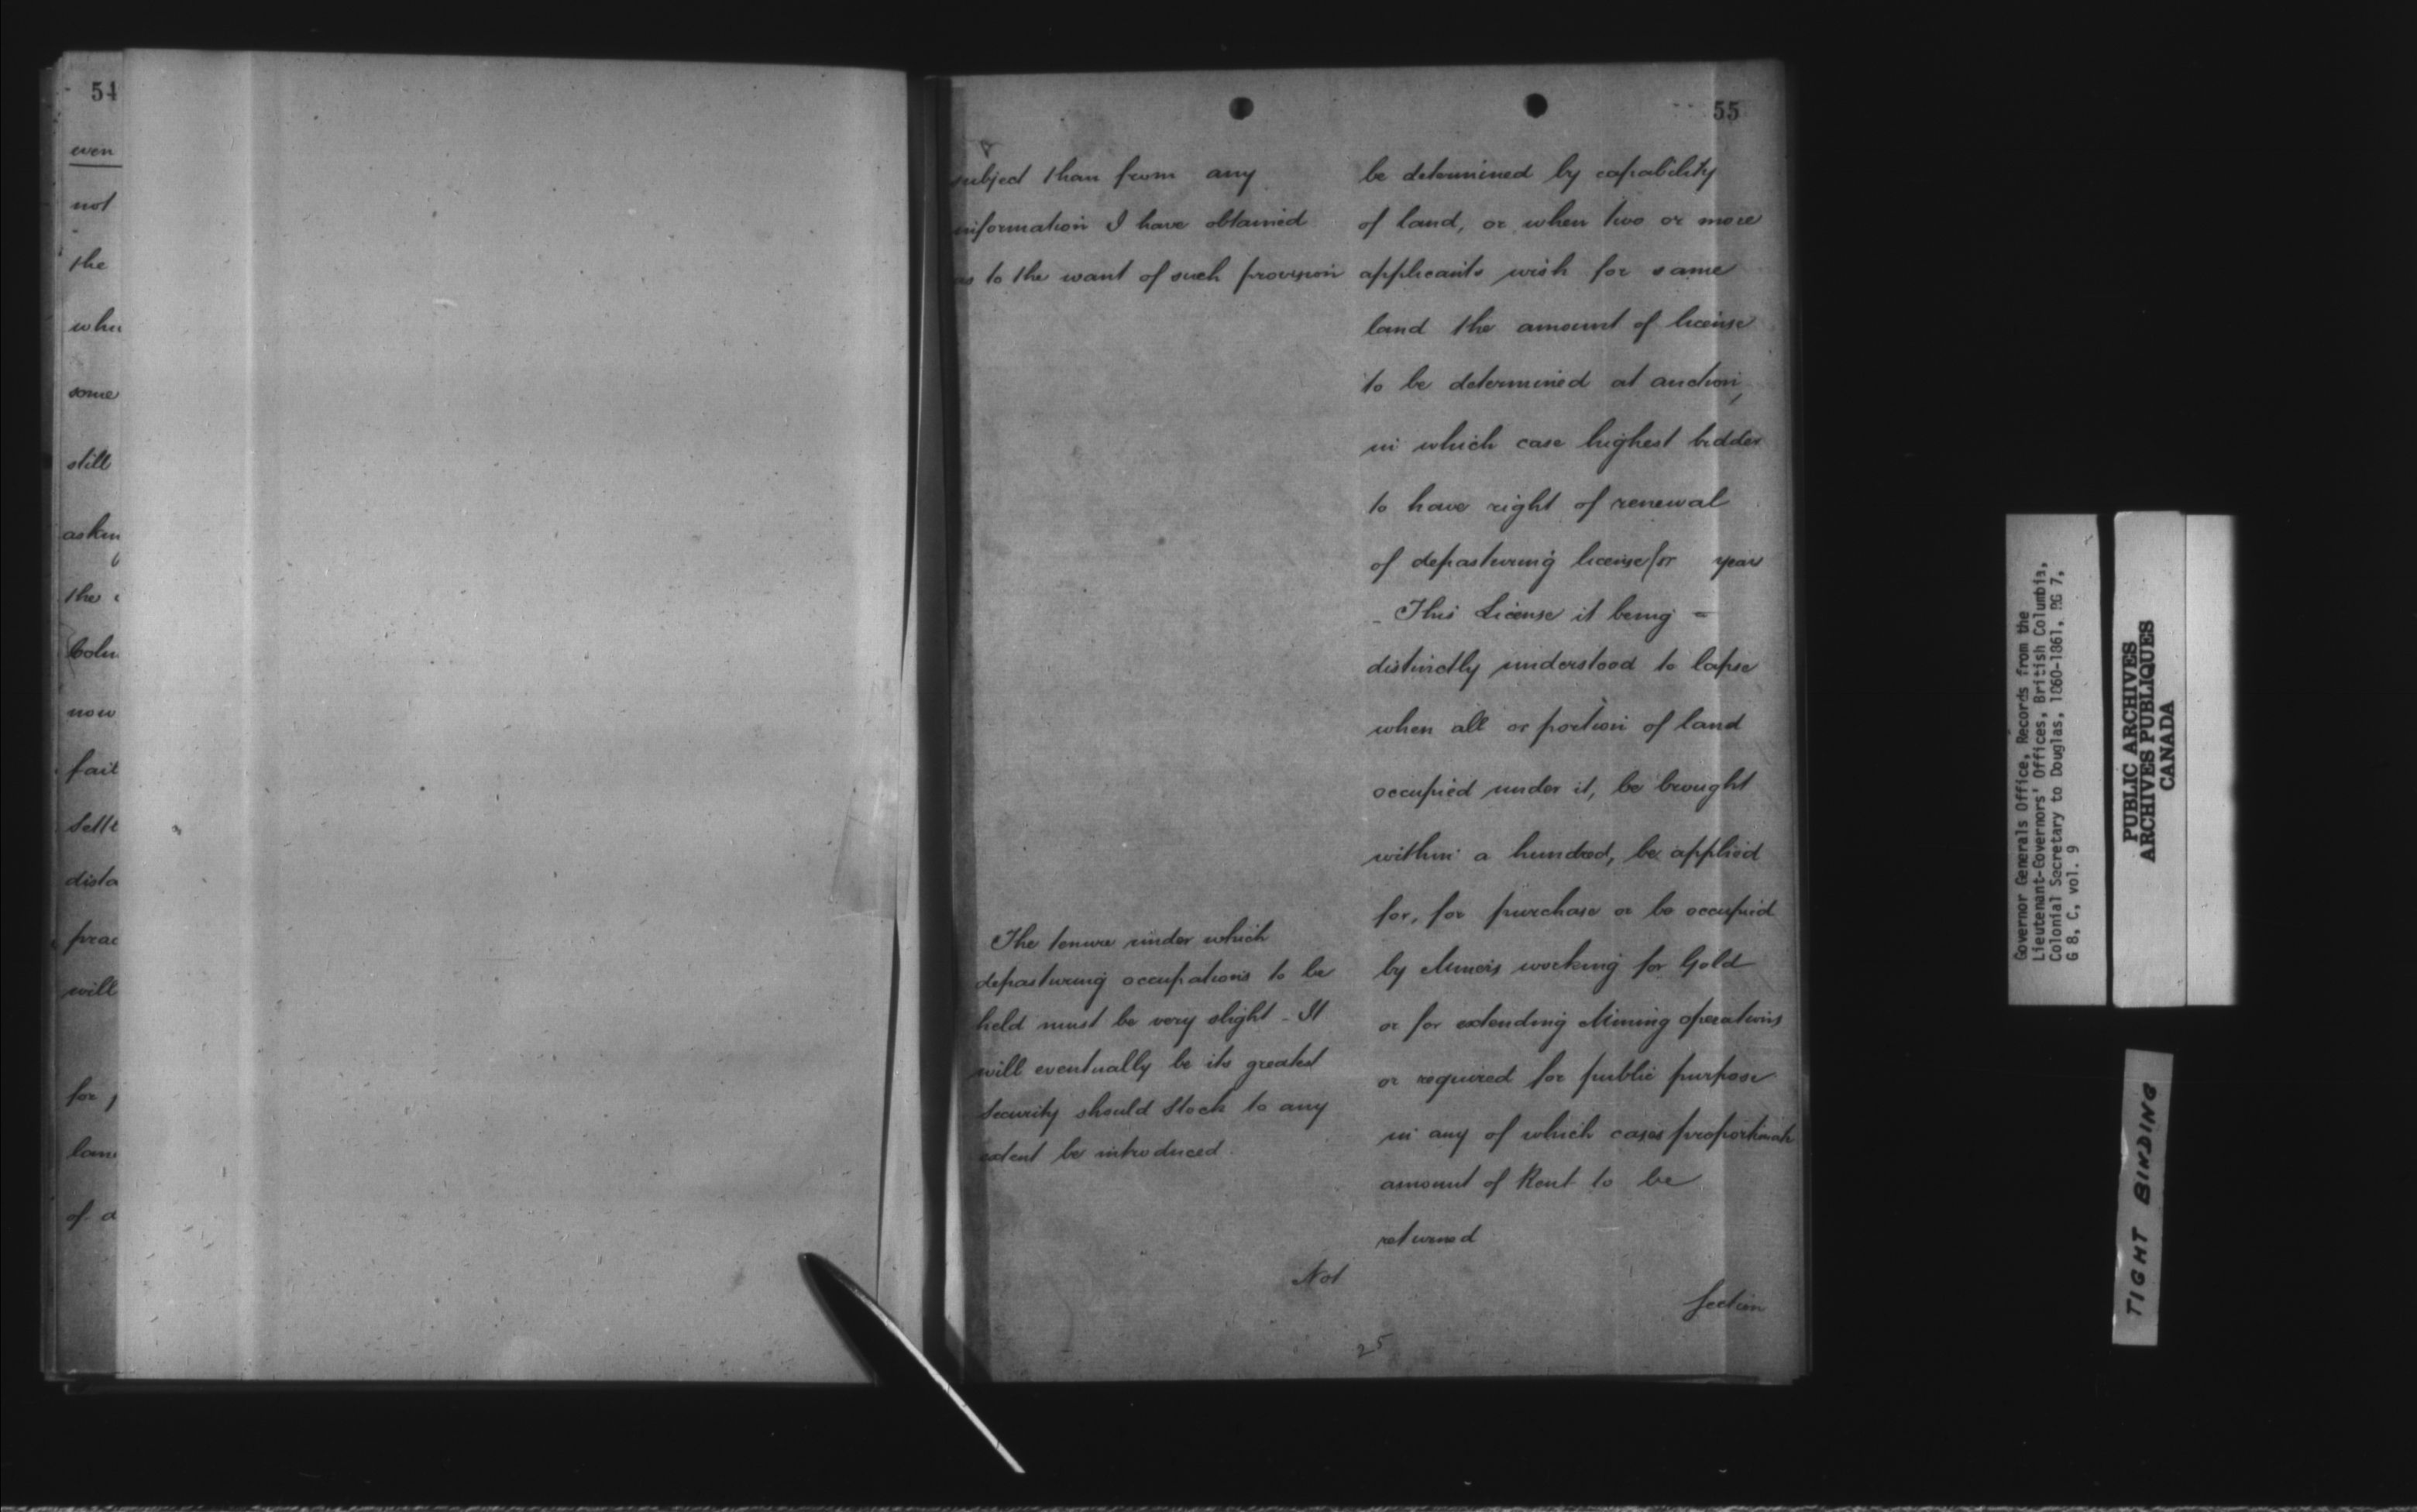 54
even
not
the
some
still
the
now
will
for
of a
55
subject than from any
information I have obtained
as to the want of such provision
The tenure under which
depasturing occupations to be
held must be very slight - It
will eventually be its greatest
security should Stock to any
extent be introduced.
Not
be determined by capability
of land, or when two or more
applicants wish for same
land the amount of license
to be determined at auction,
in which case highest bidder
to have right of renewal
of depasturing license for year
- This License it being =
distinctly understood to lapse
when all or portion of land
occupied under it, be brought
within a hundred, be applied
for, for purchase or be occupied
by Miners working for Gold
or for extending Mining operations
or required for public purpose
in any of which cases proportionate
amount of Rent to be
returned
Section
25
Governor Generals Office, Records from the
Lieutenant-Governors' Offices, British Columbia,
Colonial Secretary to Douglas, 1860-1861. RG 7,
G 8, C, vol. 9
PUBLIC ARCHIVES
ARCHIVES PUBLIQUES
CANADA
TIGHT BINDING